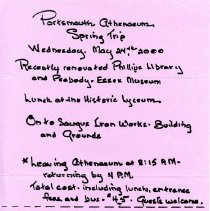 Portsmouth Athenaeum
Spring Trip
Wednesday, May 24th, 2000
Recently renovated Phillips Library
and Peabody-Essex Museum
Lunch at the Historic Lyceum
Onto Saugus Iron Works - Building
and Grounds
*Leaving Athenaeum at 8:15 AM -
returning by 4 PM.
Total cost - including lunch, entrance
fees and bus - $45. Guests welcome.